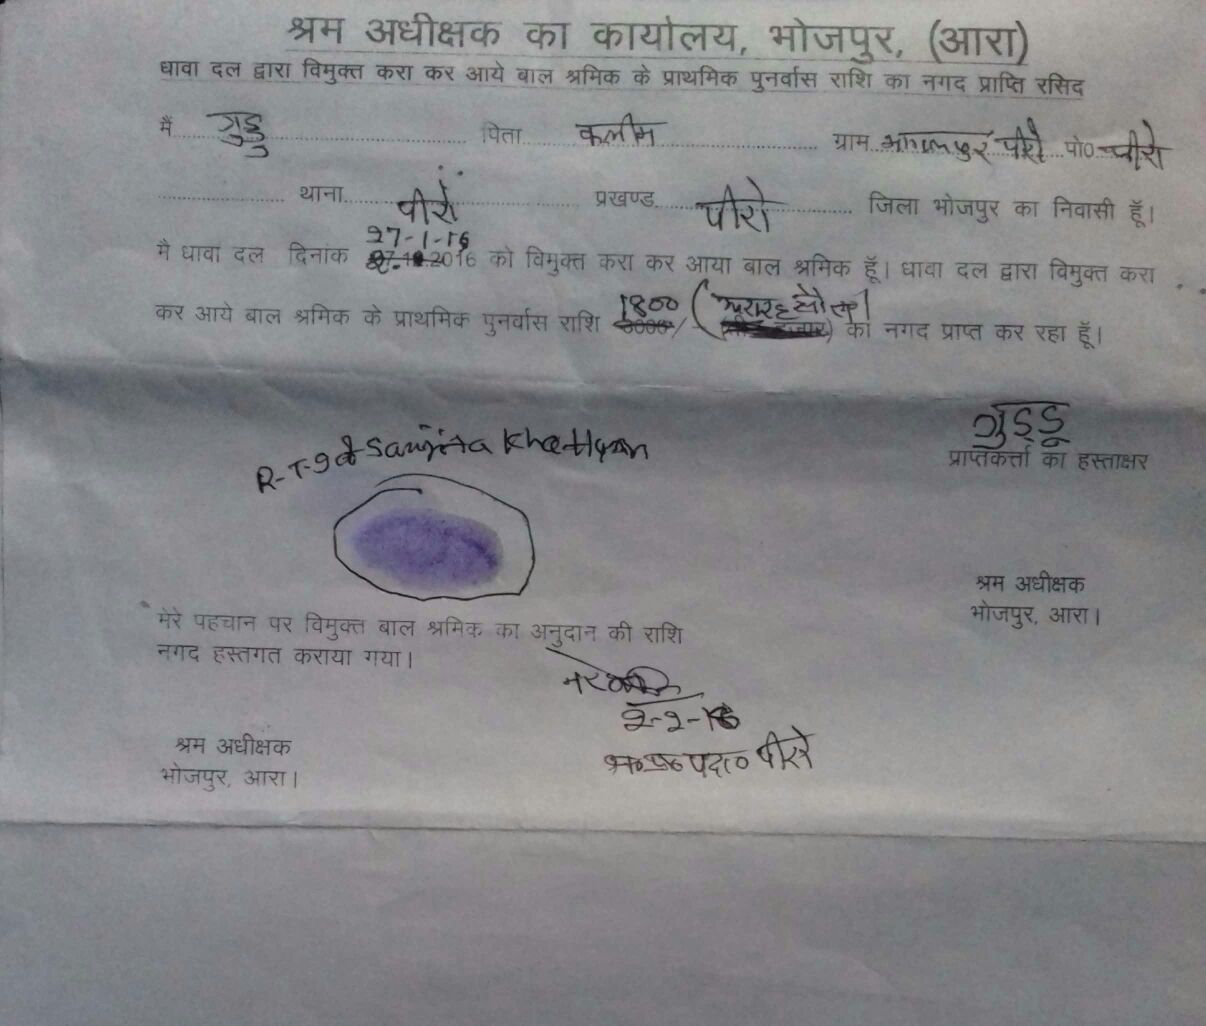 श्रम अधीक्षक का कार्यालय, भोजपुर, (आरा)
धावा दल द्वारा विमुक्त करा कर आये बाल श्रमिक के प्राथमिक पुनर्वास राशि का नगद प्राप्ति रसिद
मैं गुड्डु पिता कलीम ग्राम भागलपुर पीरो पो० पीरो
थाना पीरो प्रखण्ड पीरो जिला भोजपुर का निवासी हूँ।
27-1-16
मै धावा दल दिनांक 2016 को विमुक्त करा कर आया बाल श्रमिक हूँ। धावा दल द्वारा विमुक्त करा
1800 (
कर आये बाल श्रमिक के प्राथमिक पुनर्वास राशि 3000/- का नगद प्राप्त कर रहा हूँ।
गुड्डू
प्राप्तकर्त्ता का हस्ताक्षर
R-T-9 of Sanjita Khatyan
श्रम अधीक्षक
भोजपुर, आरा।
मेरे पहचान पर विमुक्त बाल श्रमिक का अनुदान की राशि
नगद हस्तगत कराया गया।
2-2-16
पीरो
श्रम अधीक्षक
भोजपुर, आरा।